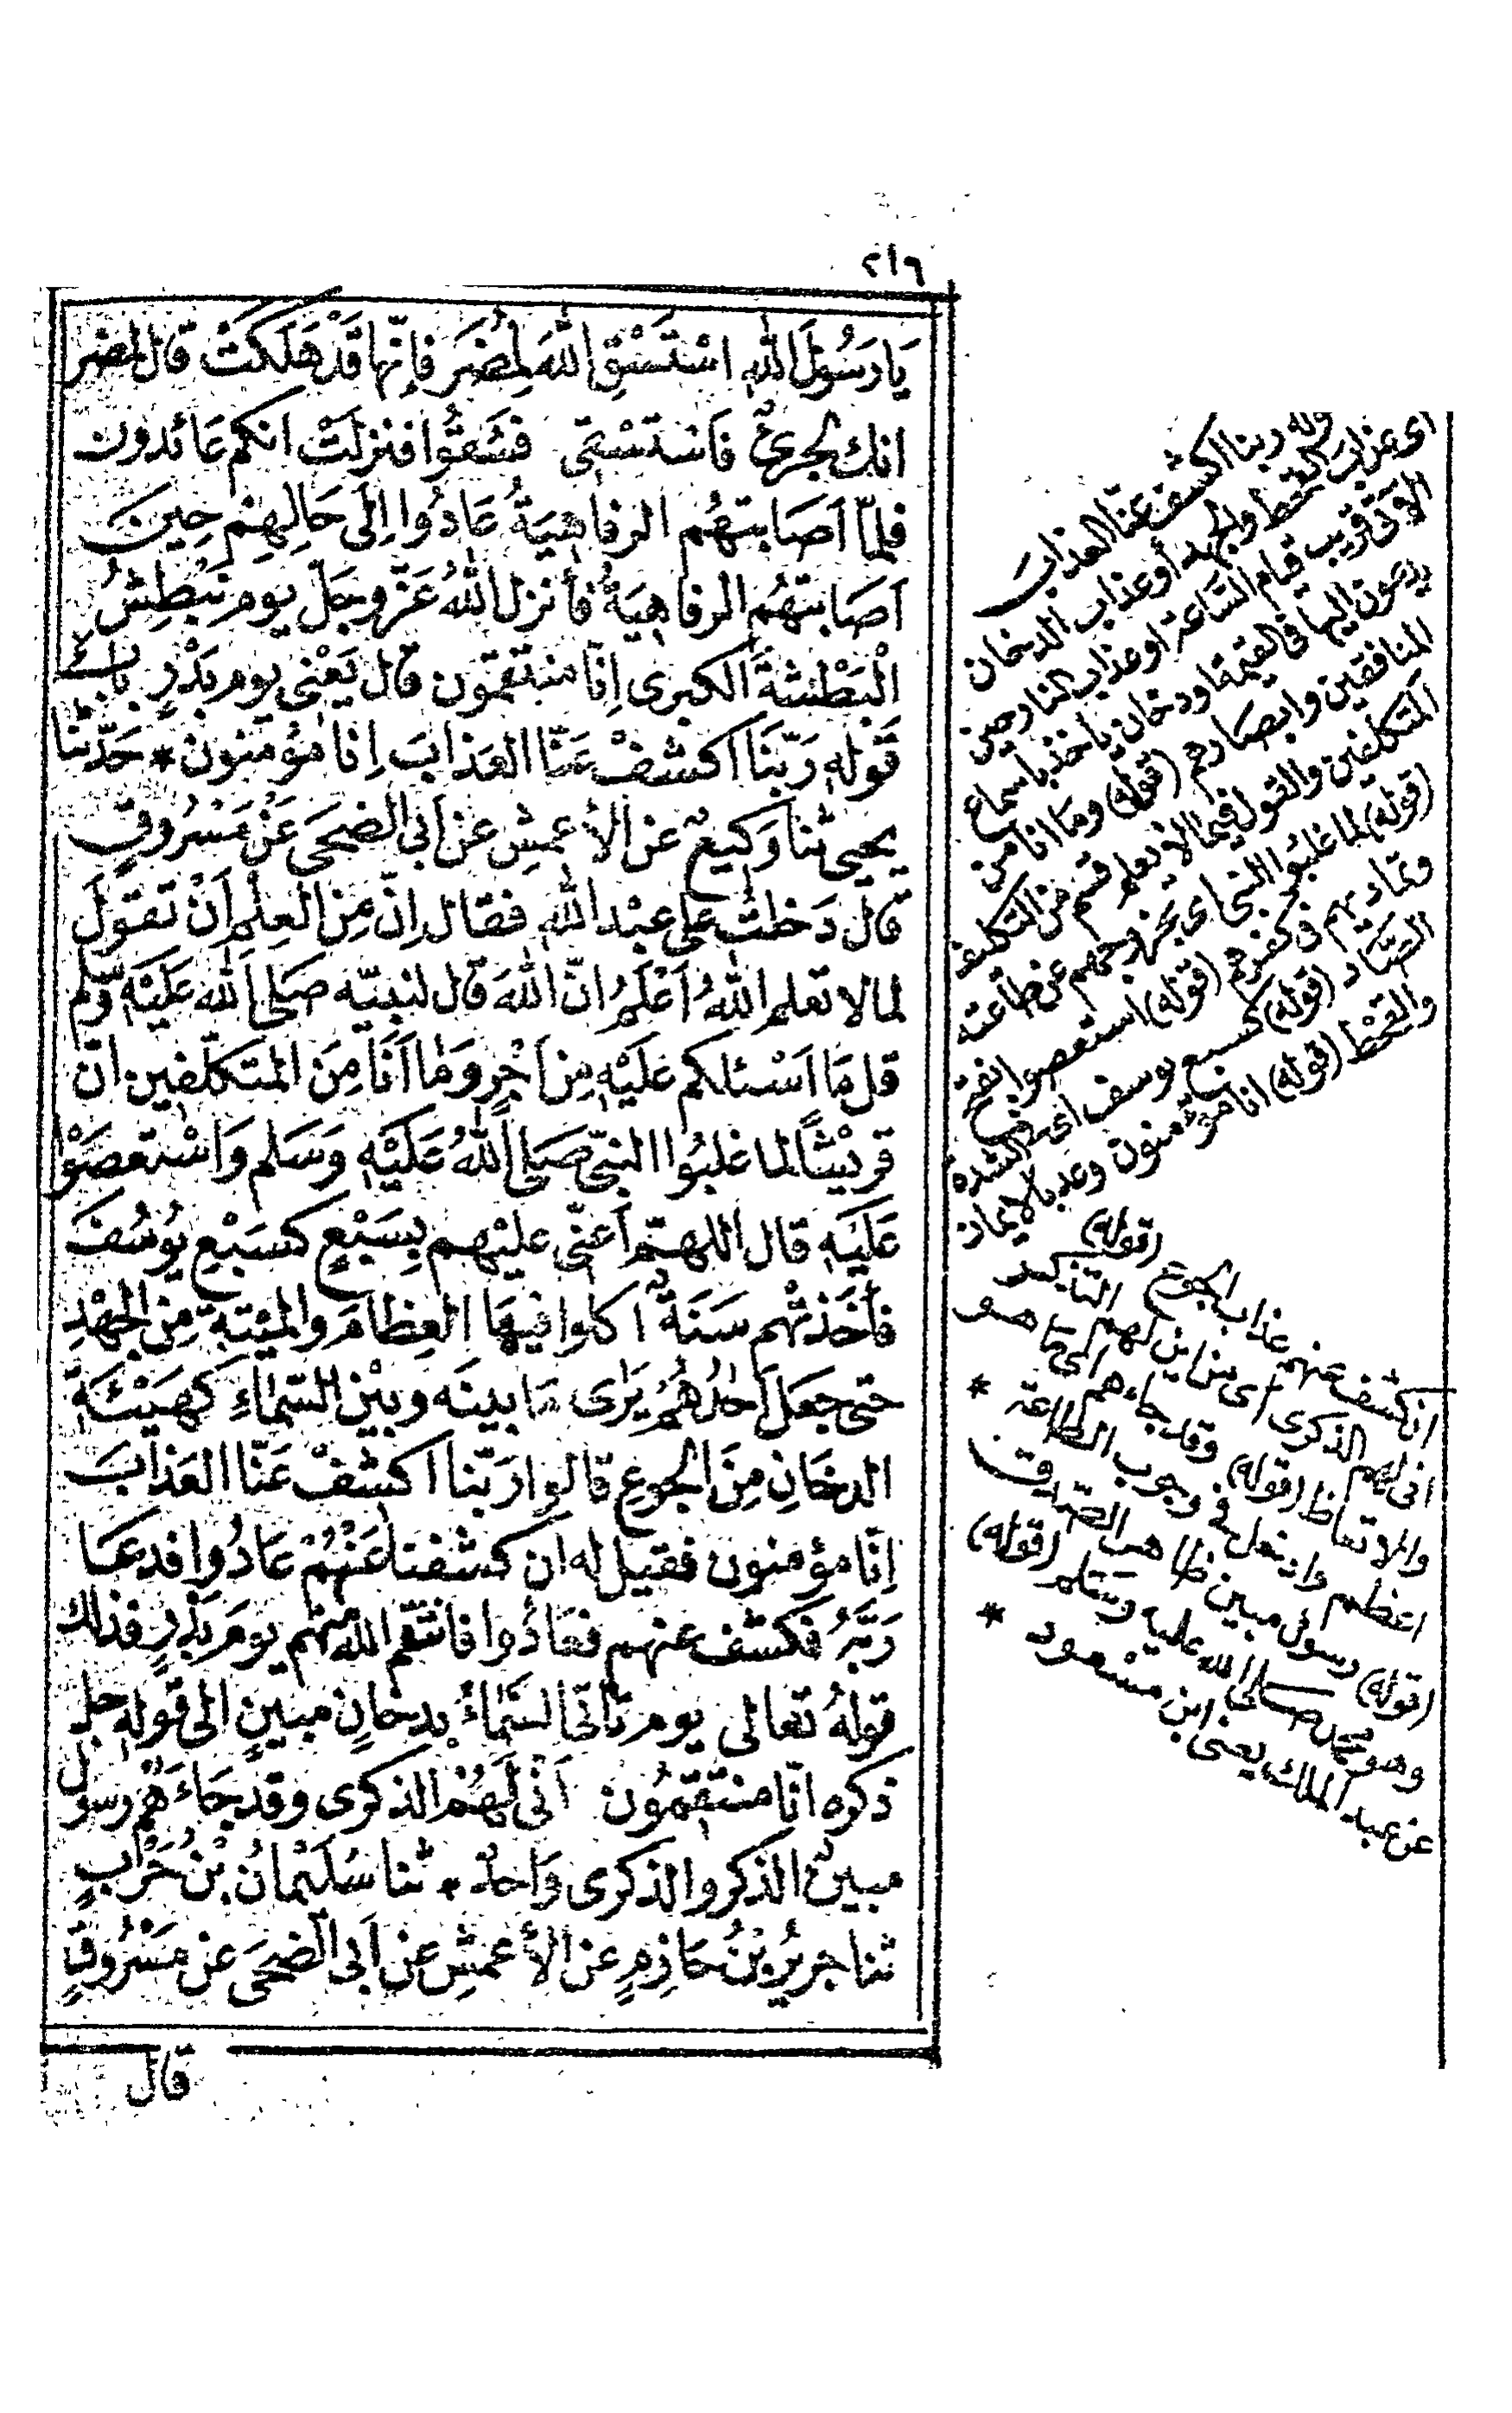 ٢١٦
يَا رَسُولَ اللهِ اسْتَسْقِ اللهَ لِمُضَرَ فَإِنَّهَا قَدْ هَلَكَتْ قَالَ لِمُضَرَ
انك لجرئٌ فَاسْتَسْقَى فَسُقُوا فنزلَتْ انكم عَائدون
فلمّا اَصَابتهُم الرفاهيَةُ عَادُوا اِلَى حَالِهِمْ حِينَ
اَصَابتهُم الرفاهِيَةُ فأنزل اللهُ عَزّ وجَلّ يوم نَبْطِشُ
الْبَطْشَةَ الكبرى اِنّا منتقمون قال يَعْنى يوم بَدْرٍ بابٌ
قَوله رَبّنَا اكشفْ عَنّا العَذابَ اِنا مؤمنون * حَدّثنا
يحيى ثنا وَكيعٌ عن الأعمشِ عن ابى الضحَى عَنْ مَسْرُوقٍ
قال دَخلتُ على عبْد الله فقال اِنّ مِنَ العِلمِ اَنْ تقولَ
لما لا تعلم اللهُ اَعْلَمُ انّ اللهَ قال لنبيّه صَلى الله عَلَيْه وسّلم
قل مَا اَسْئلكم عَلَيْهِ مِن اَجْرٍ وَمَا اَنَا مِنَ المتكلّفين انّ
قريْشًا لما غلبُوا النبّى صَلى اللهُ عَلَيْهِ وَسَلم وَاسْتعصَوْا
عَلَيْهِ قال اللهمّ اَعنّى عليْهم بِسَبْعٍ كسَبْعِ يُوسُفَ
فأخَذتْهم سَنَةٌ اكلوا فيهَا العِظامَ والميْتَةَ مِنَ الجَهْدِ
حتى جعَلَ اَحَدُهُمْ يَرَى مَا بينَه وبيْن السّمَاءِ كَهَيْئَةِ
الدخَانِ مِنَ الجوعِ قالوا رَبّنا اكشفْ عَنّا العَذابَ
اِنّا مؤمنون فقيل له ان كشفنا عَنْهُمْ عَادُوا فدعَا
رَبَّهُ فكشف عنهم فعَادُوا فانتقم الله منهم يومَ بَدْرٍ فذلك
قولهُ تعالى يوم تأتى السّمَاءُ بدخانٍ مبينٍ الى قولِه جل
ذكره انّا منتقمُون اَنّى لَهُمْ الذكرى وقد جَاءَهُمْ رسول
مبينٌ الذكر والذكرى وَاحدٌ * ثنا سُلَيْمَانُ بْنُ حَرْبٍ
ثنا جريرُ بْنُ حَازِمٍ عن الأعمشِ عن اَبى الضحَى عن مَسْرُوقٍ
قال
قوله ربنا اكشف عنّا العذابَ
اى عذاب القحط والجهد أو عذاب الدخان
الآتى قريب قيام السّاعة او عذاب النار حين
يدعون اليها فى القيمة او دخان ياخذ باسماع
المنافقين وابصارهم (قوله) وما انا من
المتكلفين والقول فيما لا يعلم قسم من التكليف
(قوله) لما غلبُوا النبى اى بخروجهم عن طاعته
وتماديهم فى كفرهم (قوله) استعصوا بفتح
الصّاد (قوله) كسبع يوسف اى فى الشدة
والقحْط (قوله) انا مؤمنون وعد بالايمان
(قوله)
ان كشف عنهم عذاب الجوع
انى لهم الذكرى اى من اين لهم التذكير
والاتعاظ (قوله) وقد جاءهم اى ما هو
اعظم وادخل فى وجوب الطاعة *
(قوله) رسول مبين ظاهر الصّدق
وهو محمّد صلى الله عليه وسّلم (قوله)
عن عبد الملك يعنى ابن مسعود *